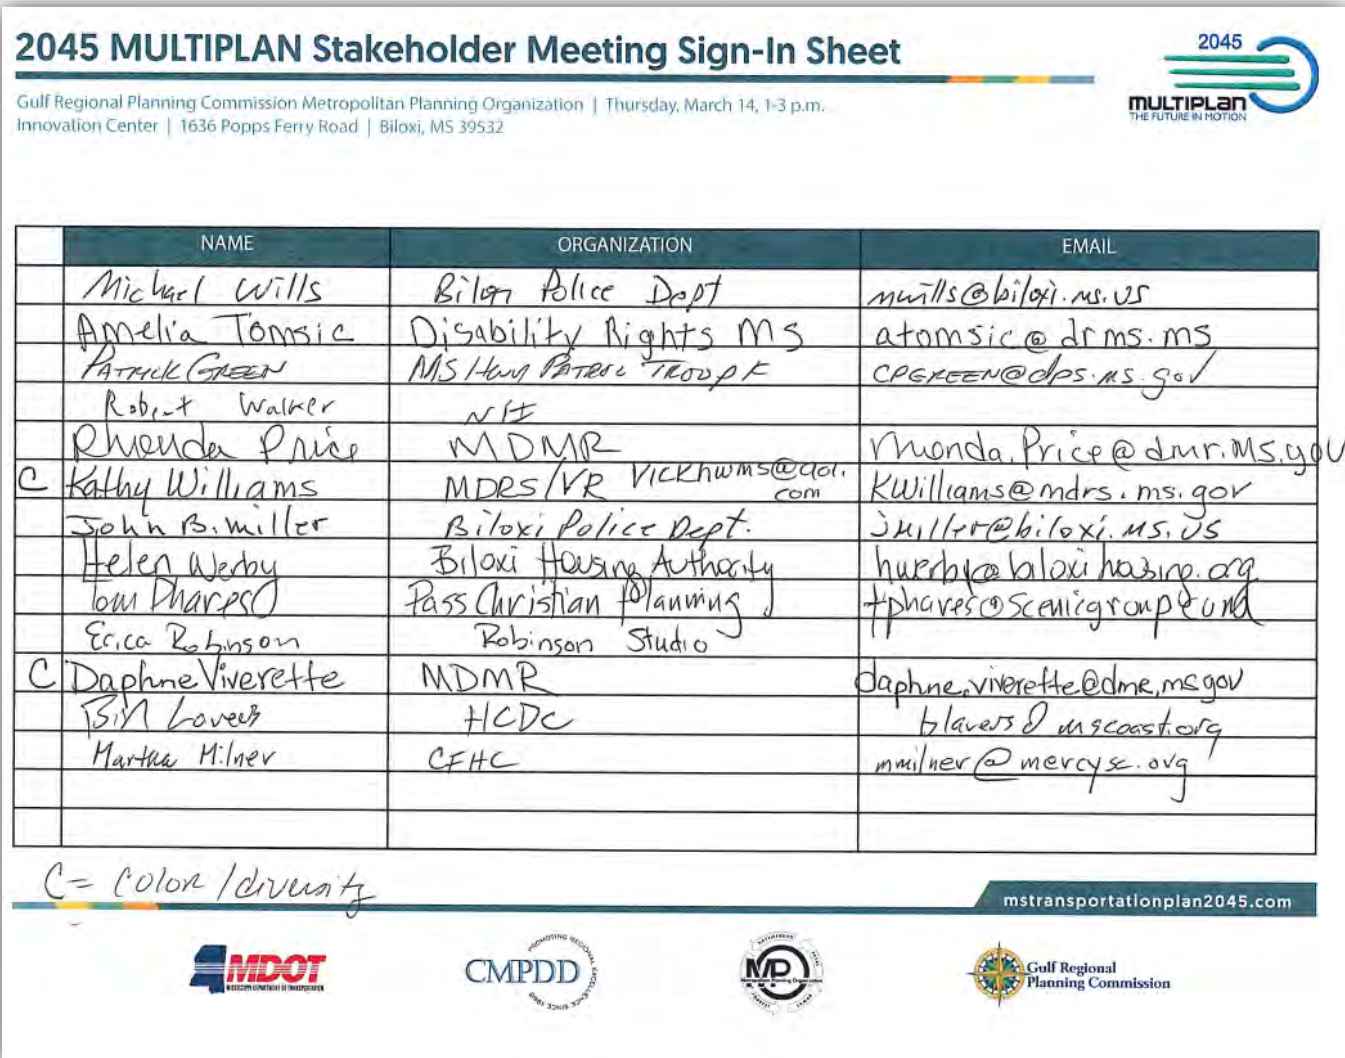 2045 MULTIPLAN Stakeholder Meeting Sign-In Sheet
2045
MULTIPLAN
THE FUTURE IN MOTION
Gulf Regional Planning Commission Metropolitan Planning Organization | Thursday, March 14, 1-3 p.m.
Innovation Center | 1636 Popps Ferry Road | Biloxi, MS 39532
NAME ORGANIZATION EMAIL
Michael Wills Police Dept mwills@biloxi.ms.us
Amelia Tomsic Disability Rights MS atomsic@drms.ms
PATRICK GREEN MS Hwy PATROL TROOP K CPGREEN@dps.ms.gov
Robert Walker
Rhonda Price MDMR rhonda.Price@dmr.MS.gov
C Kathy Williams MDRS/VR Vickhwms@aol.com KWilliams@mdrs.ms.gov
John B. Miller Biloxi Police Dept. jmiller@biloxi.MS.US
Helen Werby Biloxi Housing Authority hwerby@biloxihousing.org
Tom Phares Pass Christian Planning
Erica Robinson Robinson Studio
C Daphne Viverette MDMR daphne.viverette@dmr.ms.gov
Bill Lavers HCDC blavers@mscoast.org
Martha Milner CFHC mmilner@mercysc.org
C = Color/diversity
mstransportationplan2045.com
MDOT
MISSISSIPPI DEPARTMENT OF TRANSPORTATION
CMPDD
PROMOTING REGIONAL EXCELLENCE SINCE 1968
MPO
Metropolitan Planning Organization
Gulf Regional
Planning Commission